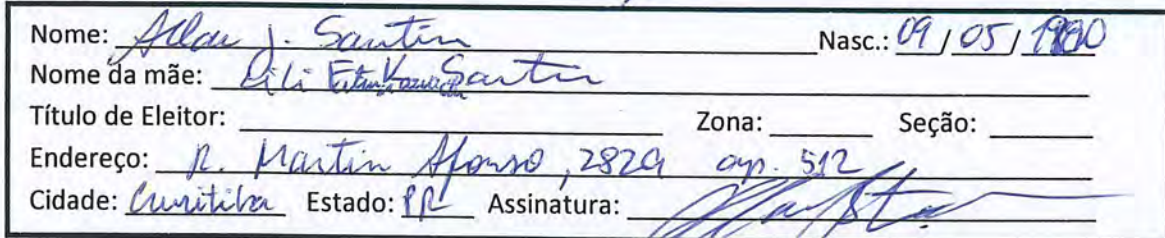 Nome: Allan J. Santin Nasc.: 09 / 05 / 1980
Nome da mãe: Lili Santin
Título de Eleitor: Zona: Seção:
Endereço: R. Martin Afonso, 2829 ap. 512
Cidade: Curitiba Estado: PR Assinatura: